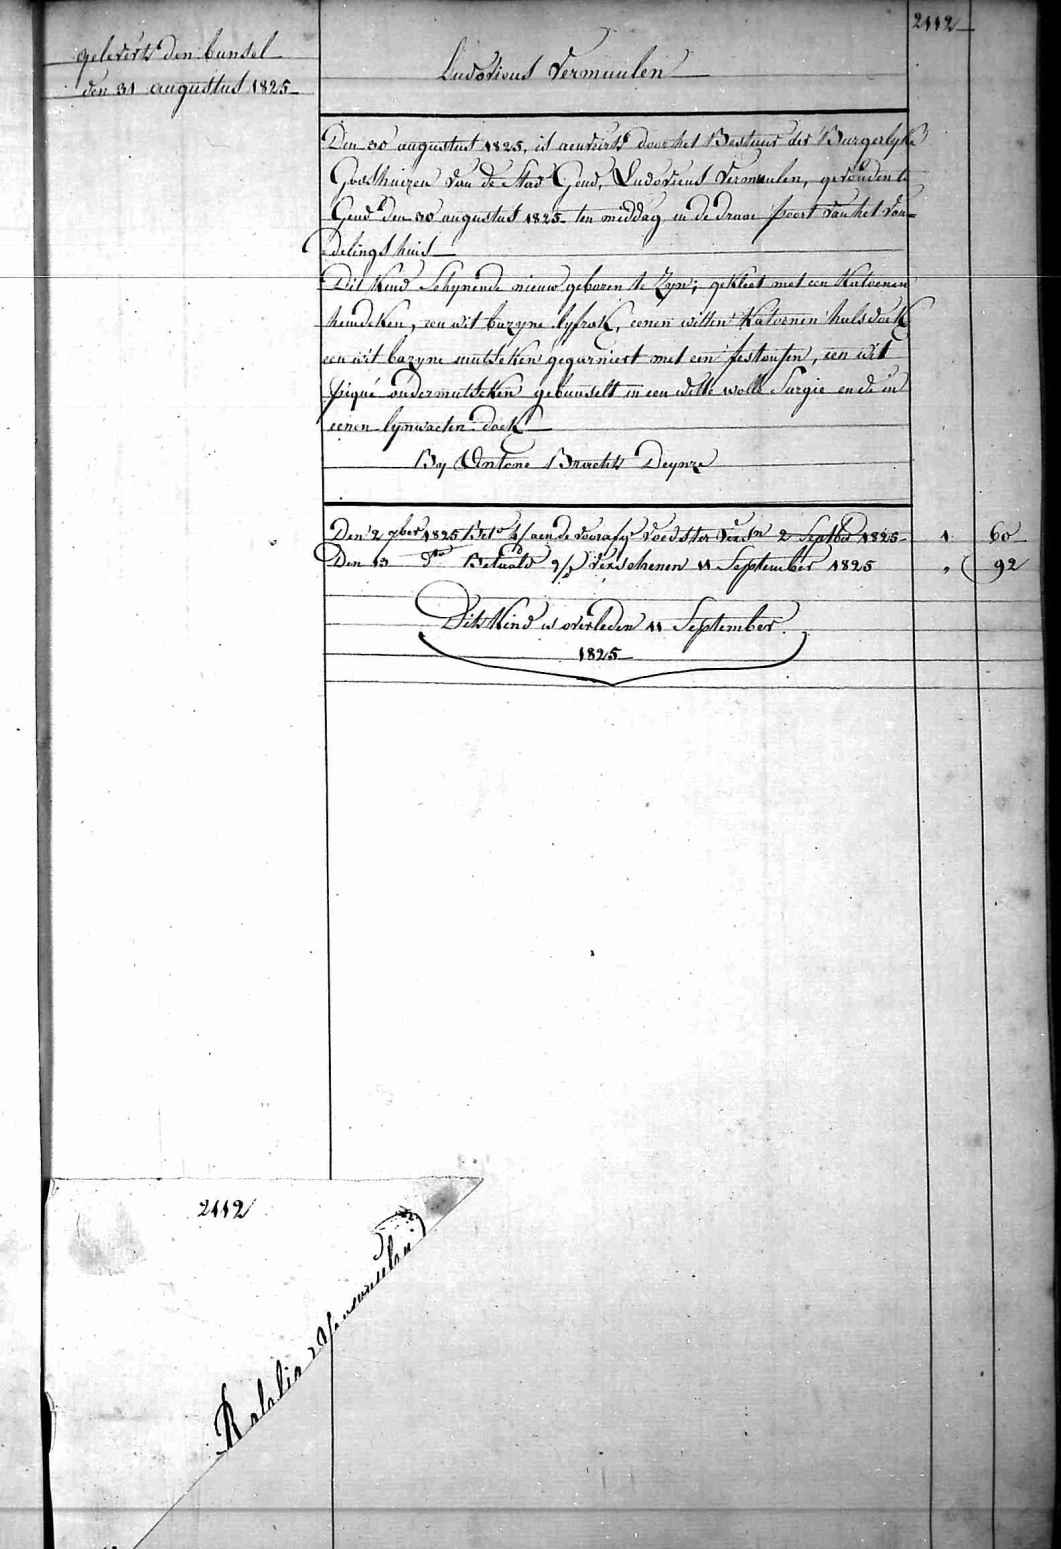 2112
geleverts den bunsel
den 31 augustus 1825
Ludovicus Vermeulen
Den 30 augustus 1825, is aenveirts door het Bestuur der Burgerlyke
Godshuizen van de Stad Gend, Ludovicus Vermeulen, gevonden te
Gend den 30 augustus 1825 ten middag in de draai poort van het von-
delings huis
Dit Kind Schynende nieuw geboren te Zyn; gekleet met een Katoenen
hemdeken, een wit bazyne lyfrok, eenen witten Katoenen halsdoek
een wit bazyne mutseken gegarniert met een festonsen, een wit
piqué ondermutseken gebunselt in een witte wolle Sargie ende in
eenen lynwaeten doek
By Antone Braeckts Deynze
Den 2 7ber 1825 Bet. aen de voorafg. voedster vers.n 2 Septbr 1825 1. 60
Den 13 do Betaald verschenen 11 September 1825 " 92
Dits Kind is overleden 11 September
1825
2112
Rosalia Vermeulen